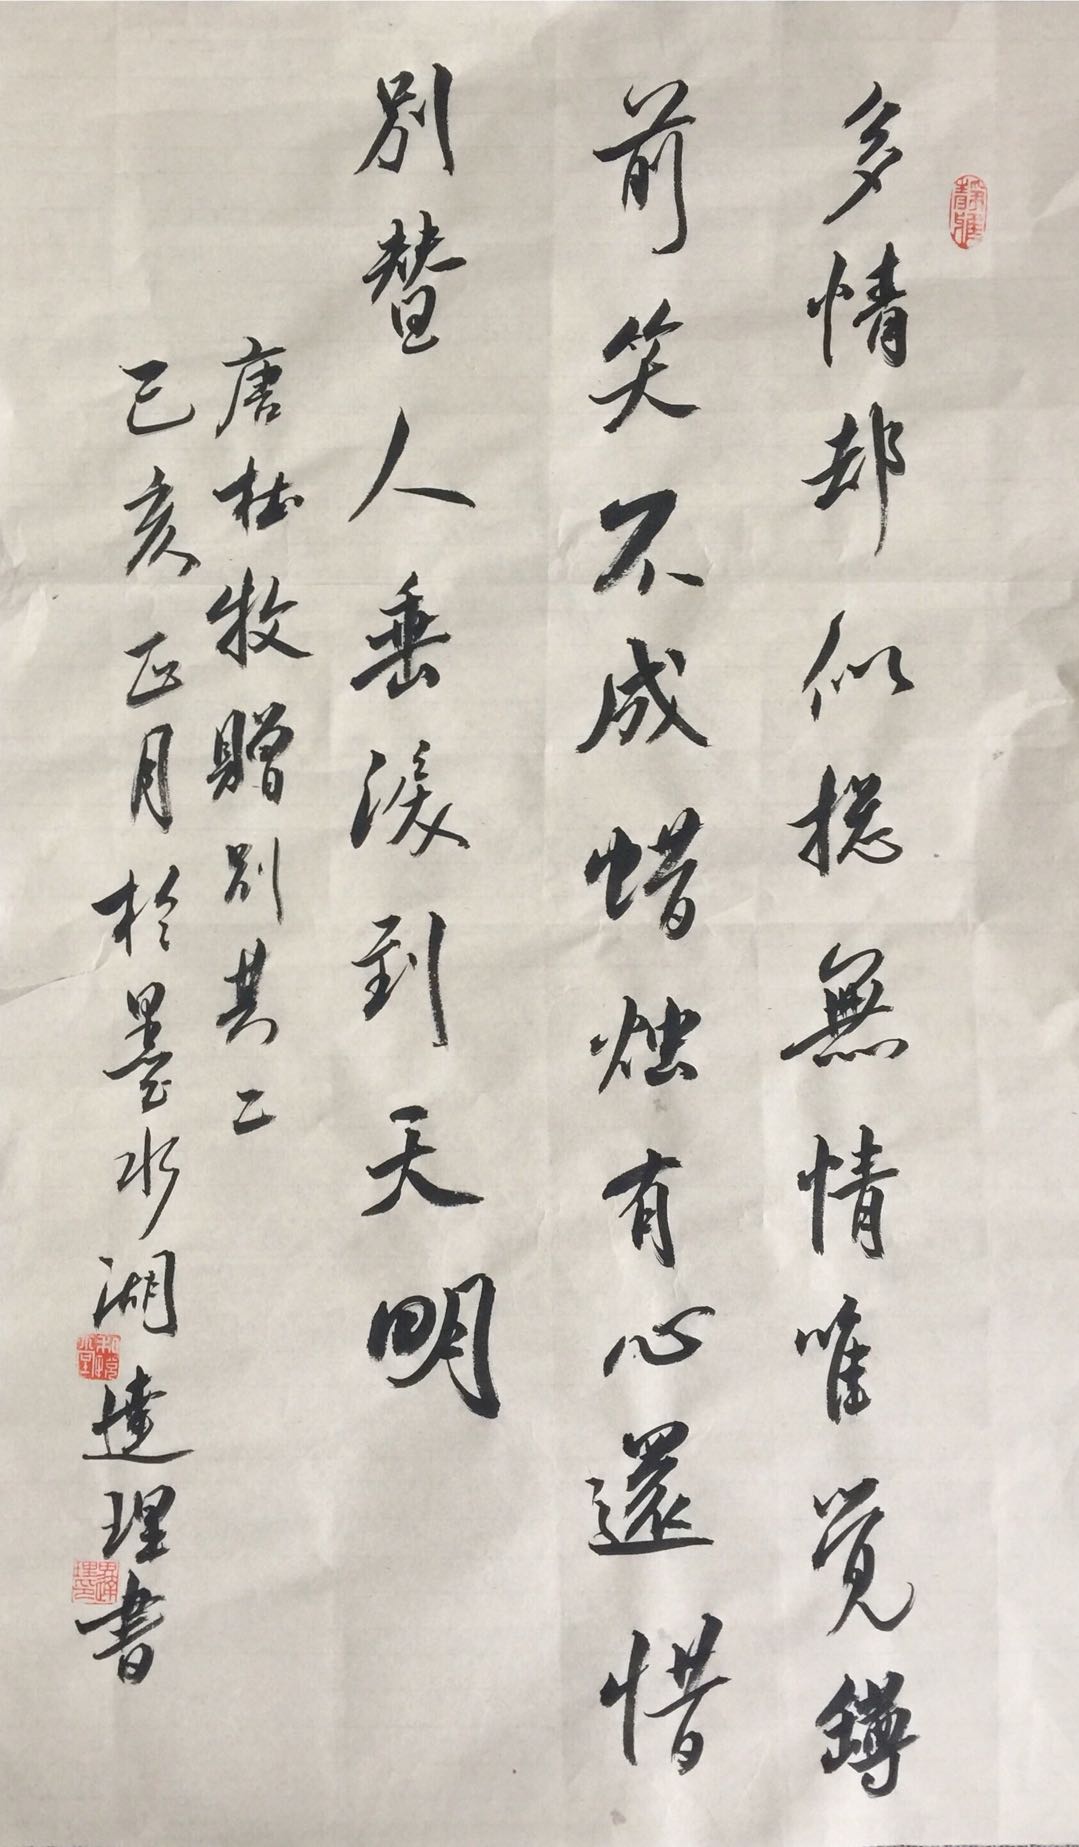 多情却似摠無情唯覺鐏
前笑不成蜡烛有心還惜
别替人垂淚到天明
唐杜牧贈别其二
己亥正月於墨水湖達理書